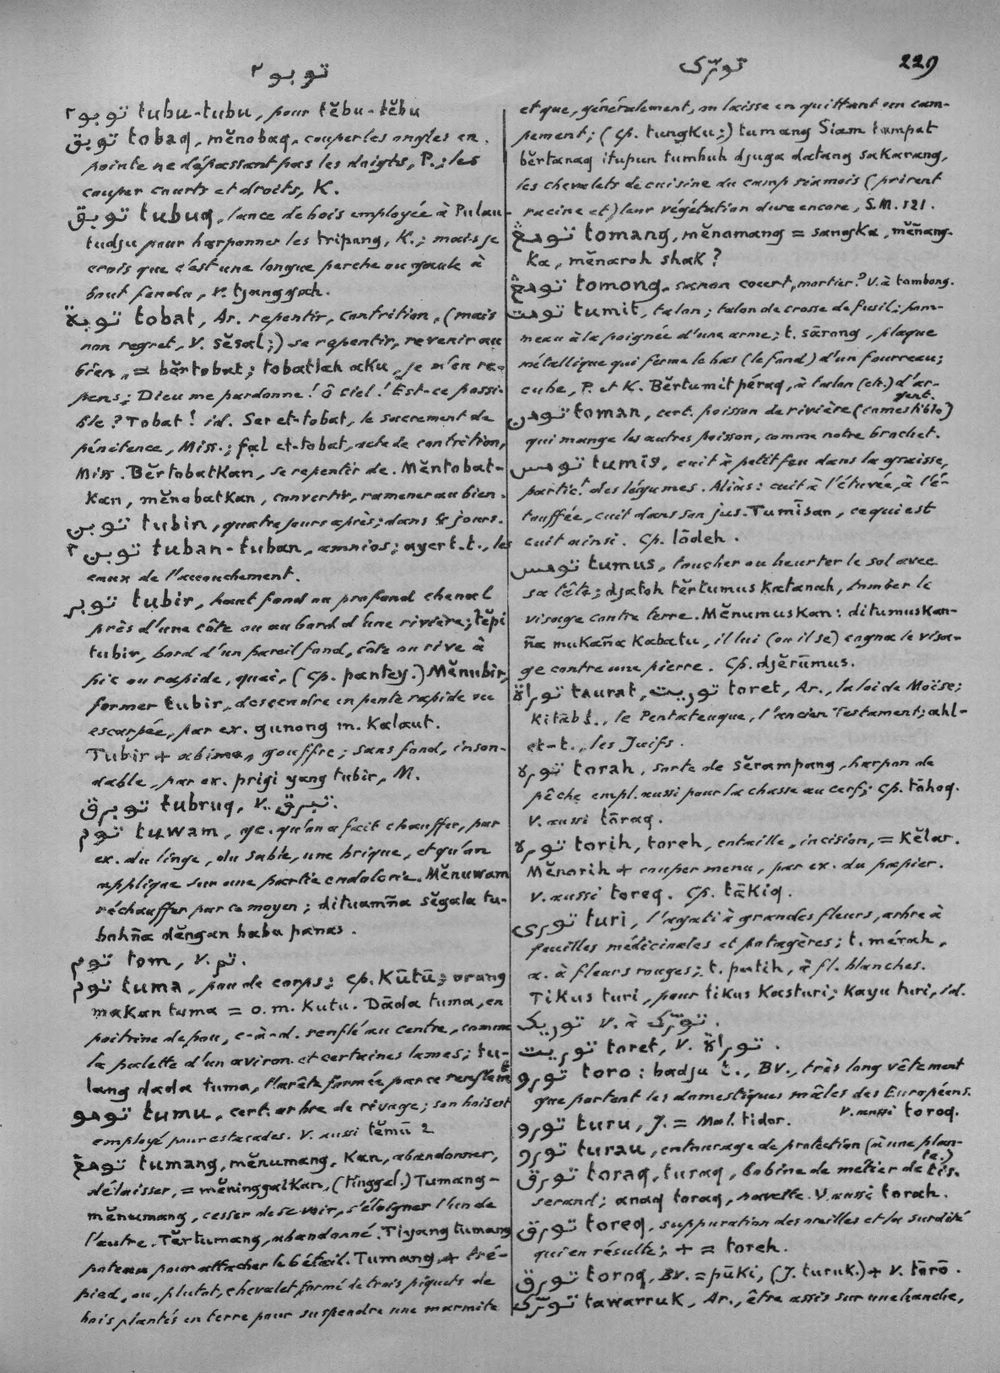 توبو٢
تورّک
229
توبو٢ tubu-tubu, pour tĕbu-tĕbu
توبق tobaq, mĕnobaq, couper les ongles en
pointe ne dépassant pas les doigts, P.; les
couper courts et droits, K.
توبق tubuq, lance de bois employée à Pulau-
tudju pour harponner les tripang, K.; mais je
crois que c'est une longue perche ou gaule à
bout fendu, v. tjanggah.
توبة tobat, Ar. repentir, contrition, (mais
non regret, v. sĕsal;) se repentir, revenir au
bien, = bĕrtobat; tobatlah aku, je m'en re-
pens; Dieu me pardonne! ô ciel! Est-ce possi-
ble? Tobat! id. Ser et-tobat, le sacrement de
pénitence, Miss.; fạl et-tobat, acte de contrition,
Miss. Bĕrtobatkan, se repentir de. Mĕntobat-
kan, mĕnobatkan, convertir, ramener au bien.
توبن tubin, quatre jours après; dans 4 jours.
توبن٢ tuban-tuban, amnios; ayer t.t., les
eaux de l'accouchement.
توبر tubir, haut fond ou profond chenal
près d'une côte ou au bord d'une rivière; tĕpi
tubir, bord d'un pareil fond, côte ou rive à
pic ou rapide, quai, (cp. pantey.) Mĕnubir,
former tubir, descendre en pente rapide ou
escarpée, par ex. gunong m. kalaut.
Tubir + abime, gouffre; sans fond, inson-
dable, par ex. prigi yang tubir, M.
توبرق tubruq, v. تبرق.
توم tuwam, qc. qu'on a fait chauffer, par
ex. du linge, du sable, une brique, et qu'on
applique sur une partie endolorie. Mĕnuwam
réchauffer par ce moyen; dituamn̄a sĕgala tu-
bohn̄a dĕngan babu panas.
توم tom, v. تم.
توم tuma, pou de corps; cp. Kūtū; orang
makan tuma = o.m. kutu. Dāda tuma, en
poitrine de pou, c-à-d. renflé au centre, comme
la palette d'un aviron et certaines lames; tu-
lang dada tuma, l'arête formée par ce renflemt
تومو tumu, cert. arbre de rivage; son bois est
employé pour estacades. V. aussi tĕmū 2
تومڠ tumang, mĕnumang, kan, abandonner,
délaisser, = mĕninggalkan, (tinggel.) Tumang-
mĕnumang, cesser de se voir, s'éloigner l'un de
l'autre. Tĕrtumang, abandonné. Tiyang tumang
poteau pour attacher le bétail. Tumang, + tré-
pied, ou, plutot, chevalet formé de trois piquets de
bois plantés en terre pour suspendre une marmite
et que, généralement, on laisse en quittant un cam-
pement; (cp. tungku;) tumang Siam tampat
bĕrtanaq itupun tumbuh djuga datang sakarang,
les chevalets de cuisine du camp siamois (prirent
racine et) leur végétation dure encore, S.M. 121.
تومڠ tomang, mĕnomang = sangka, mĕn̄ang-
ka, mĕnaroh shak?
تومڠ tomong, canon court, mortier? V. à tombong.
تومت tumit, talon; talon de crosse de fusil; pom-
meau à la poignée d'une arme; t. sārong, plaque
métallique qui ferme le bas (le fond) d'un fourreau;
cube, P. et K. Bĕrtumit pēraq, à talon (etc.) d'ar-
gent.
تومن toman, cert. poisson de rivière (comestible)
qui mange les autres poisson, comme notre brochet.
تومس tumis, cuit à petit feu dans la graisse,
partict. des légumes. Aliàs: cuit à l'étuvée, à l'é-
touffée, cuit dans son jus. Tumīsan, ce qui est
cuit ainsi. Cp. lōdeh.
تومس tumus, toucher ou heurter le sol avec
sa tête; djatoh tĕrtumus katanah, tomber le
visage contre terre. Mĕnumuskan: ditumuskan-
n̄a mukan̄a kabatu, il lui (ou il se) cogna le visa-
ge contre une pierre. Cp. djĕrūmus.
توراة taurat, توريت toret, Ar., la loi de Moïse;
kitāb t., le Pentateuque, l'ancien Testament; ahl-
et-t., les Juifs.
توره torah, sorte de sĕrampang, harpon de
pêche empl. aussi pour la chasse au cerf; cp. tōhoq.
V. aussi tōraq.
توره torih, toreh, entaille, incision, = kĕlar.
Mĕnorih + couper menu, par ex. du papier.
V. aussi toreq. Cp. tākiq.
توري turi, l'agati à grandes fleurs, arbre à
feuilles médicinales et potagères; t. mérah,
a. à fleurs rouges; t. putih, à fl. blanches.
Tikus turi, pour tikus kasturi; kayu turi, id.
توريک v. à تورّک.
توريت toret, v. توراة.
تورو toro: badju t., BV., très long vêtement
que portent les domestiques mâles des Européens.
V. aussi toroq.
تورو turu, J. = Mal. tidor.
تورو turau, entourage de protection (à une plan-
te.)
تورق toraq, turaq, bobine de métier de tis-
serand; anaq toraq, navette. V. aussi torah.
تورق toreq, suppuration des oreilles et la surdité
qui en résulte; + = toreh.
تورق toroq, BV. = pūki, (J. turuk.) + v. tōrō.
تورّک tawarruk, Ar., être assis sur une hanche,